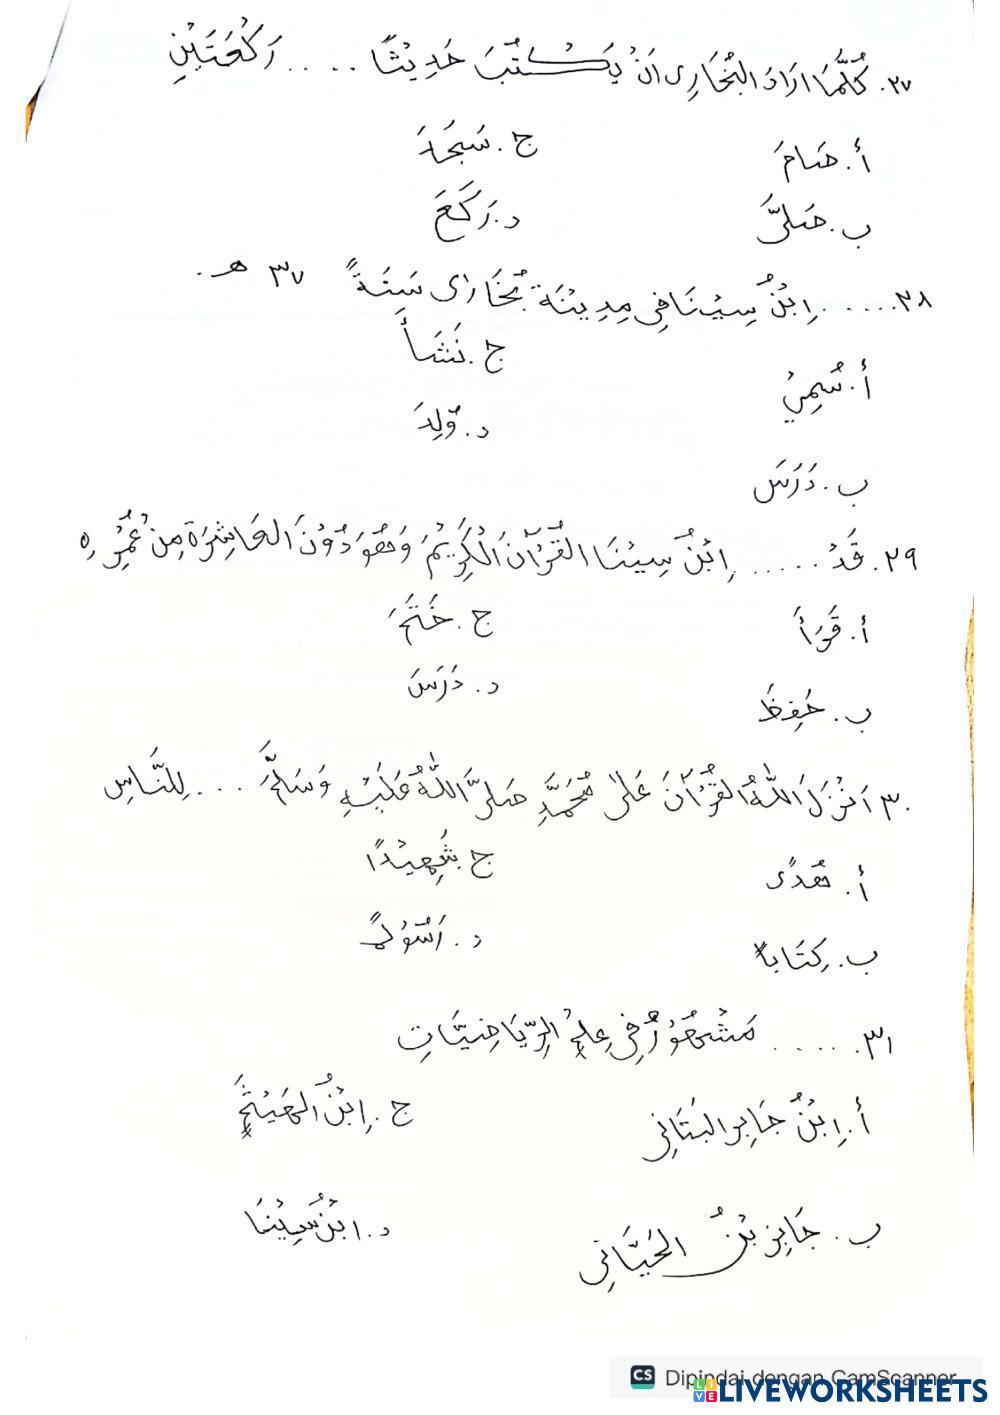 ٢٧. كُلَّمَا اَرَادَ البُخَارِى اَنْ يَكْتُبَ حَدِيْثًا ..... رَكْعَتَيْنِ
أ. صَامَ
ج. سَجَدَ
ب. صَلىَّ
د. رَكَعَ
٢٨. ..... اِبْنُ سِيْنَا فِي مِدِيْنَة بُخَارٰى سَنَةً ٣٧ هـ.
أ. سُمِيْ
ج. نَشَأَ
د. وُلِدَ
ب. دَرَسَ
٢٩. قَدْ ..... اِبْنُ سِيْنَا القُرْآنَ الْكَرِيْمَ وَهُوَ دُوْنَ العَاشِرَة مِنْ عُمُرِهِ
أ. قَرَأَ
ج. خَتَمَ
ب. حَفِظَ
د. دَرَسَ
٣٠. اَنْزَلَ اللهُ القُرْآنَ عَلٰى مُحَمَّدٍ صَلىَّ اللهُ عَلَيْهِ وَسَلَّمَ .... لِلنَّاسِ
أ. هُدًى
ج. شَهِيْدًا
ب. كِتَابًا
د. رَسُوْلًا
٣١. ..... مَشْهُوْرٌ فِي عِلْمِ الرِّيَاضِيَّاتِ
أ. اِبْنُ جَابِر البَتَانِي
ج. اِبْنُ الهَيْثَمِ
ب. جَابِر بْنُ الحَيَّانِي
د. ابْنُ سِيْنَا
CS Dipindai dengan CamScanner
LIVE LIVEWORKSHEETS